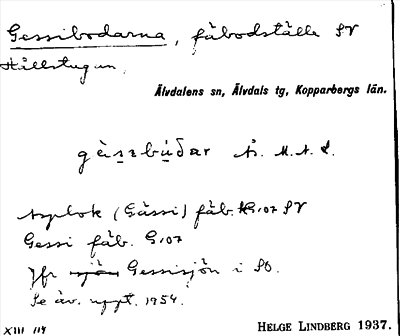 Gessibodarna, fäbodställe SV
Hållstugan.
Älvdalens sn, Älvdals tg, Kopparbergs län.
Asplok (Gässi) fäb. G:07 SV
Gessi fäb. G:07
Jfr sjön Gessisjön i SO.
Se äv. uppt. 1954.
XIII 114
HELGE LINDBERG 1937.